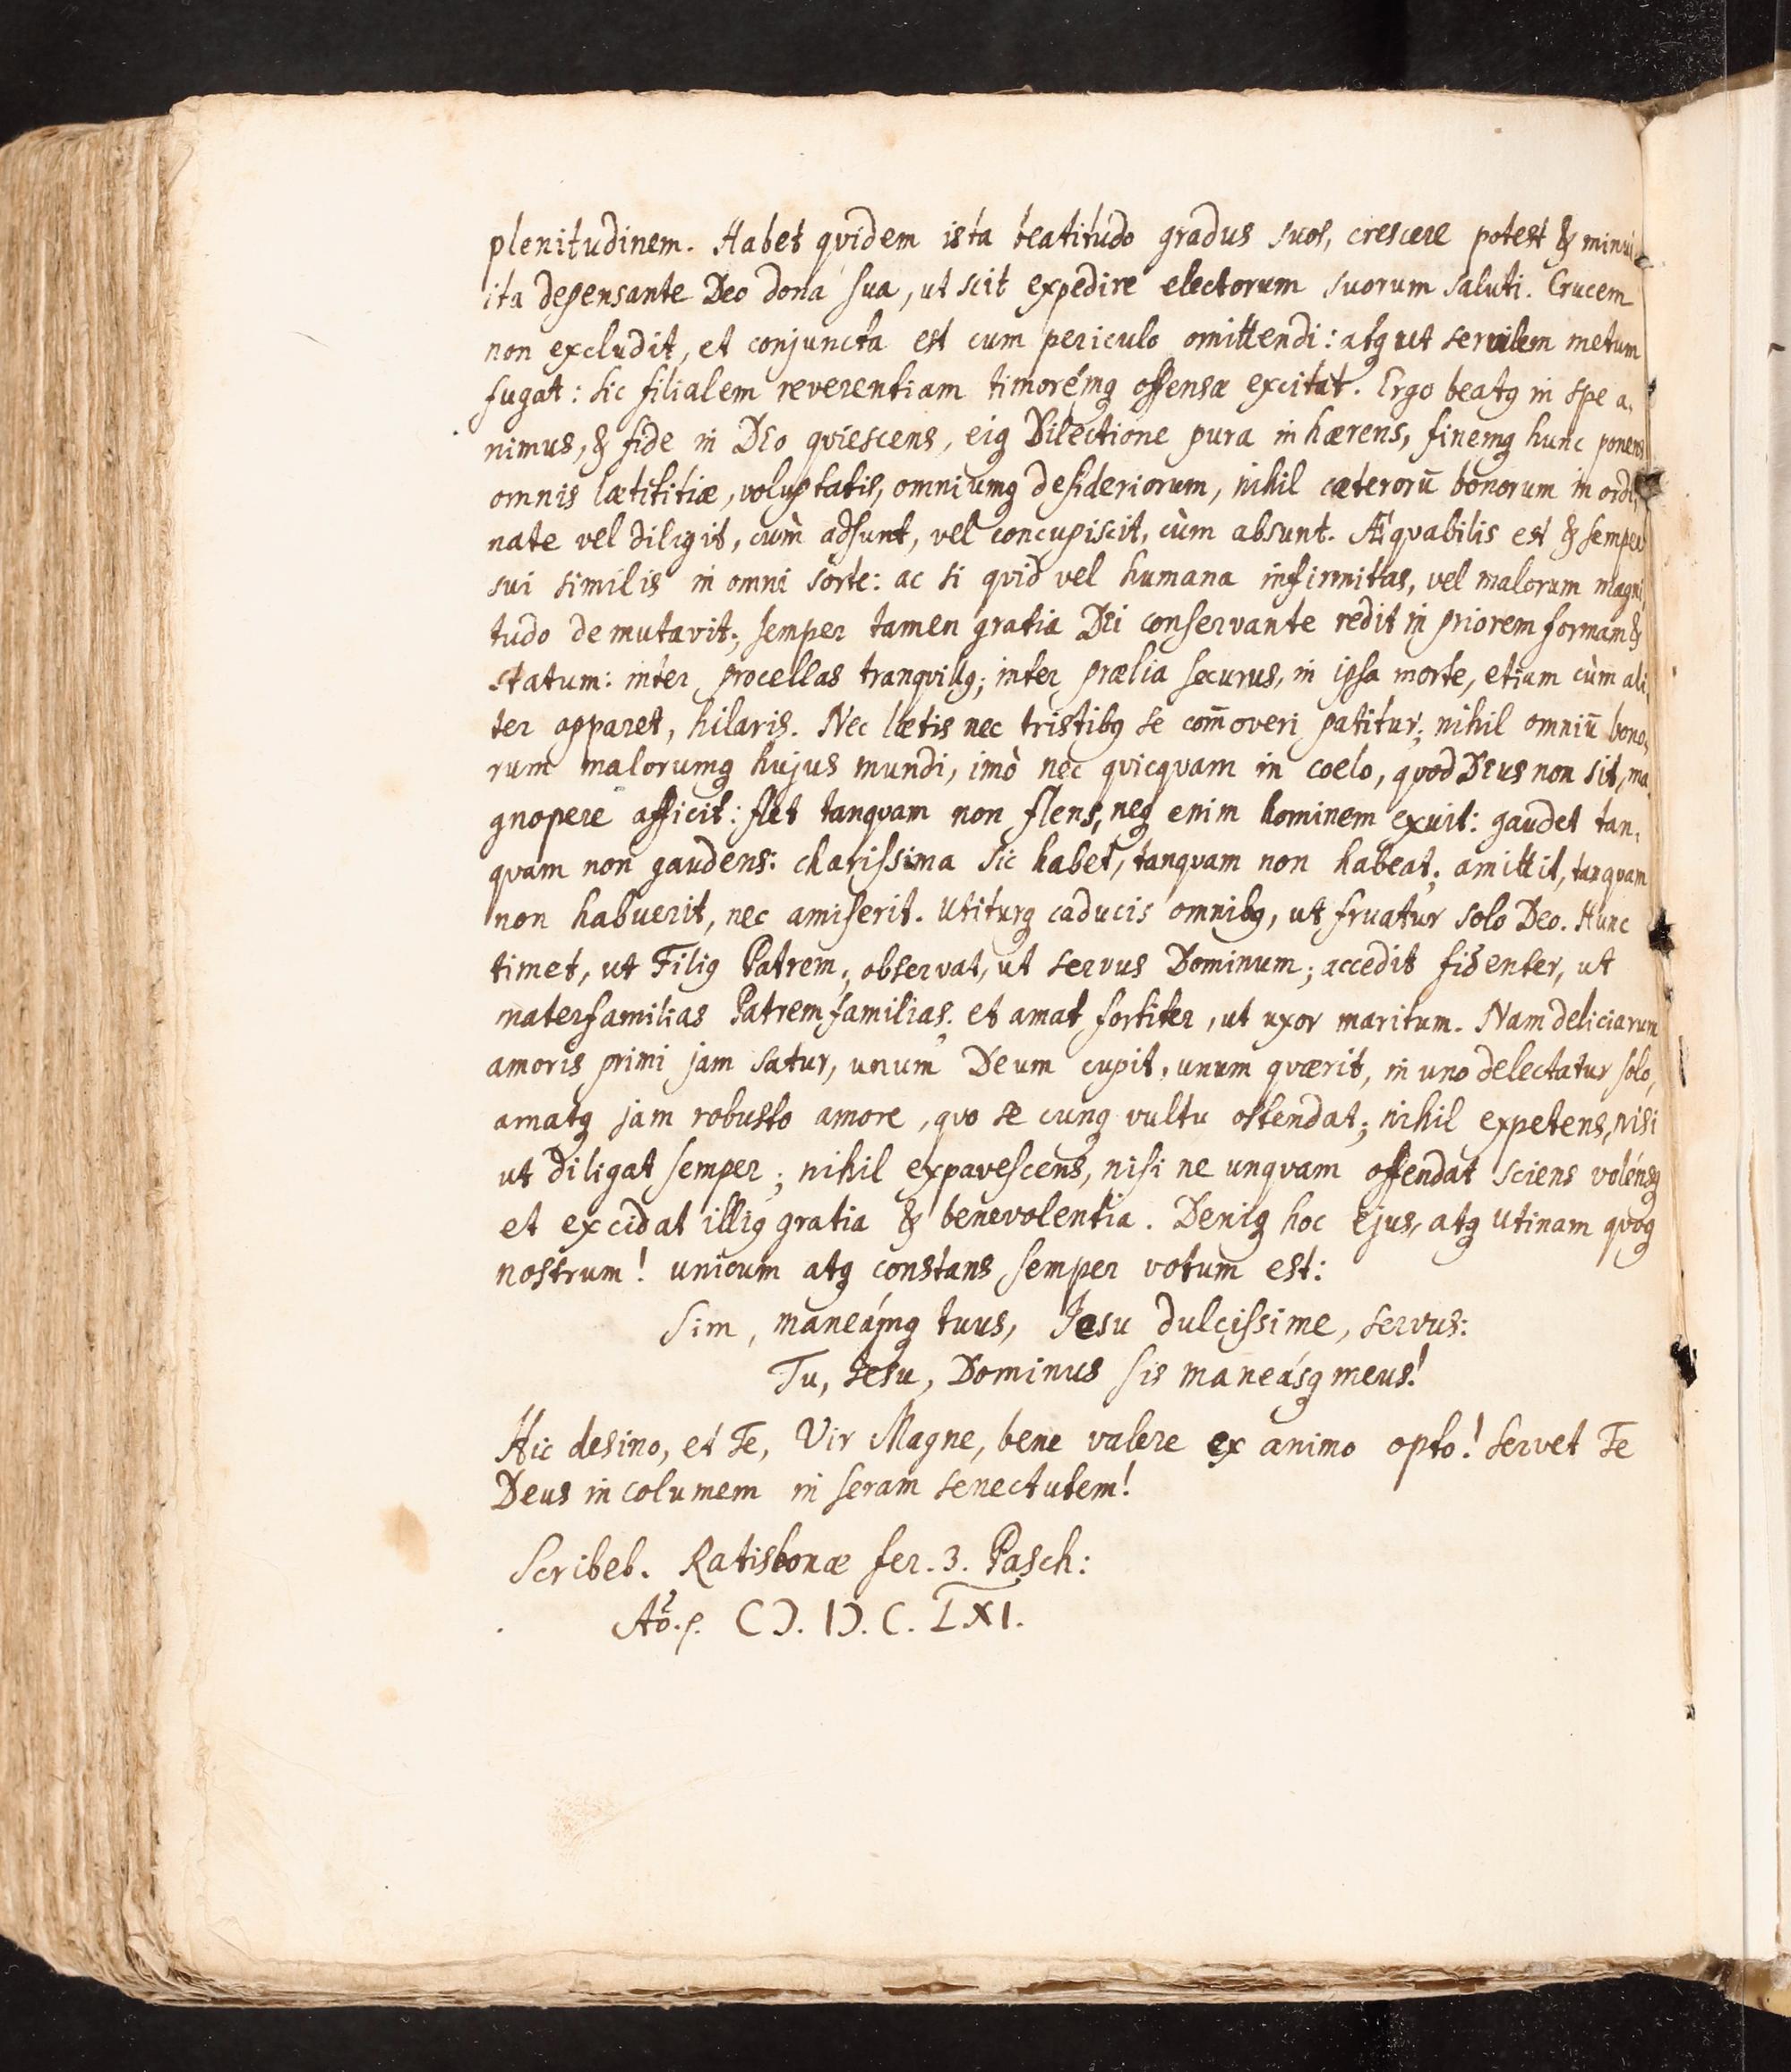 plenitudinem. Habet qvidem ista beatitudo gradus suos, crescere potest & minui
ita depensante Deo dona sua, ut scit expedire electorum suorum saluti. Crucem
non excludit, et conjuncta est cum periculo omittendi: atq ut servilem metum
fugat: sic filialem reverentiam timorémq offensæ excitat. Ergo beatq in spe a,
nimus, & fide in DEo qviescens, eiq Dilectione pura in hærens, finemq hunc ponens
omnis lætititiæ, voluptatis, omniumq desideriorum, nihil cæterorū bonorum in ordi,
nate vel diligit, cùm adsunt, vel concupiscit, cùm absunt. Æqvabilis est & semper
sui similis in omni sorte: ac si qvid vel humana infirmitas, vel malorum magni,
tudo demutavit; semper tamen gratia DEi conservante redit in priorem formam &
statum: inter procellas tranqvillq; inter prælia securus, in ipsa morte, etiam cùm ali,
ter apparet, hilaris. Nec lætis nec tristibq se com̄overi patitur; nihil omniū bono,
rum malorumq hujus mundi, imò nec qvicqvam in coelo, qvod DEus non sit, ma,
gnopere afficit: flet tanqvam non flens, neq enim hominem exuit: gaudet tan,
qvam non gaudens: charissima sic habet, tanqvam non habeat; amittit, tanqvam
non habuerit, nec amiserit. Utiturq caducis omnibq, ut fruatur solo Deo. Hunc
timet, ut Filiq Patrem; observat, ut servus Dominum; accedit fidenter, ut
materfamilias Patremfamilias; et amat fortiter, ut uxor maritum. Nam deliciarum
amoris primi jam satur, unum Deum cupit, unum qværit, in uno delectatur solo,
amatq jam robusto amore, qvo se cunq vultu ostendat; nihil expetens, nisi
ut diligat semper; nihil expavescens, nisi ne unqvam offendat sciens volénsq
et excidat illiq gratia & benevolentia. Deniq hoc ejus, atq utinam qvoq
nostrum! unicum atq constans semper votum est:
Sim, maneámq tuus, Jesu dulcissime, servus:
Tu, Jesu, Dominus sis maneásq meus!
Hic desino, et Te, Vir Magne, bene valere ex animo opto! Servet Te
Deus in columem in seram senectutem!
Scribeb. Ratisbonæ fer. 3. Pasch:
Aõ. CƆ. IƆ. C. LXI.